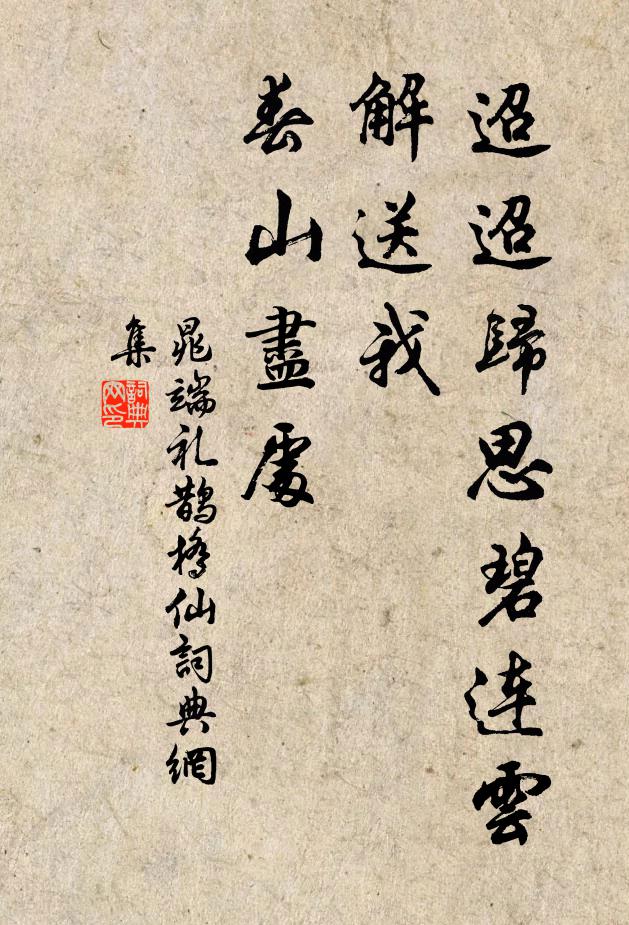 迢迢歸思碧連雲
解送我
春山盡處
晁端礼鵲橋仙詞典網
集
詞典
网印